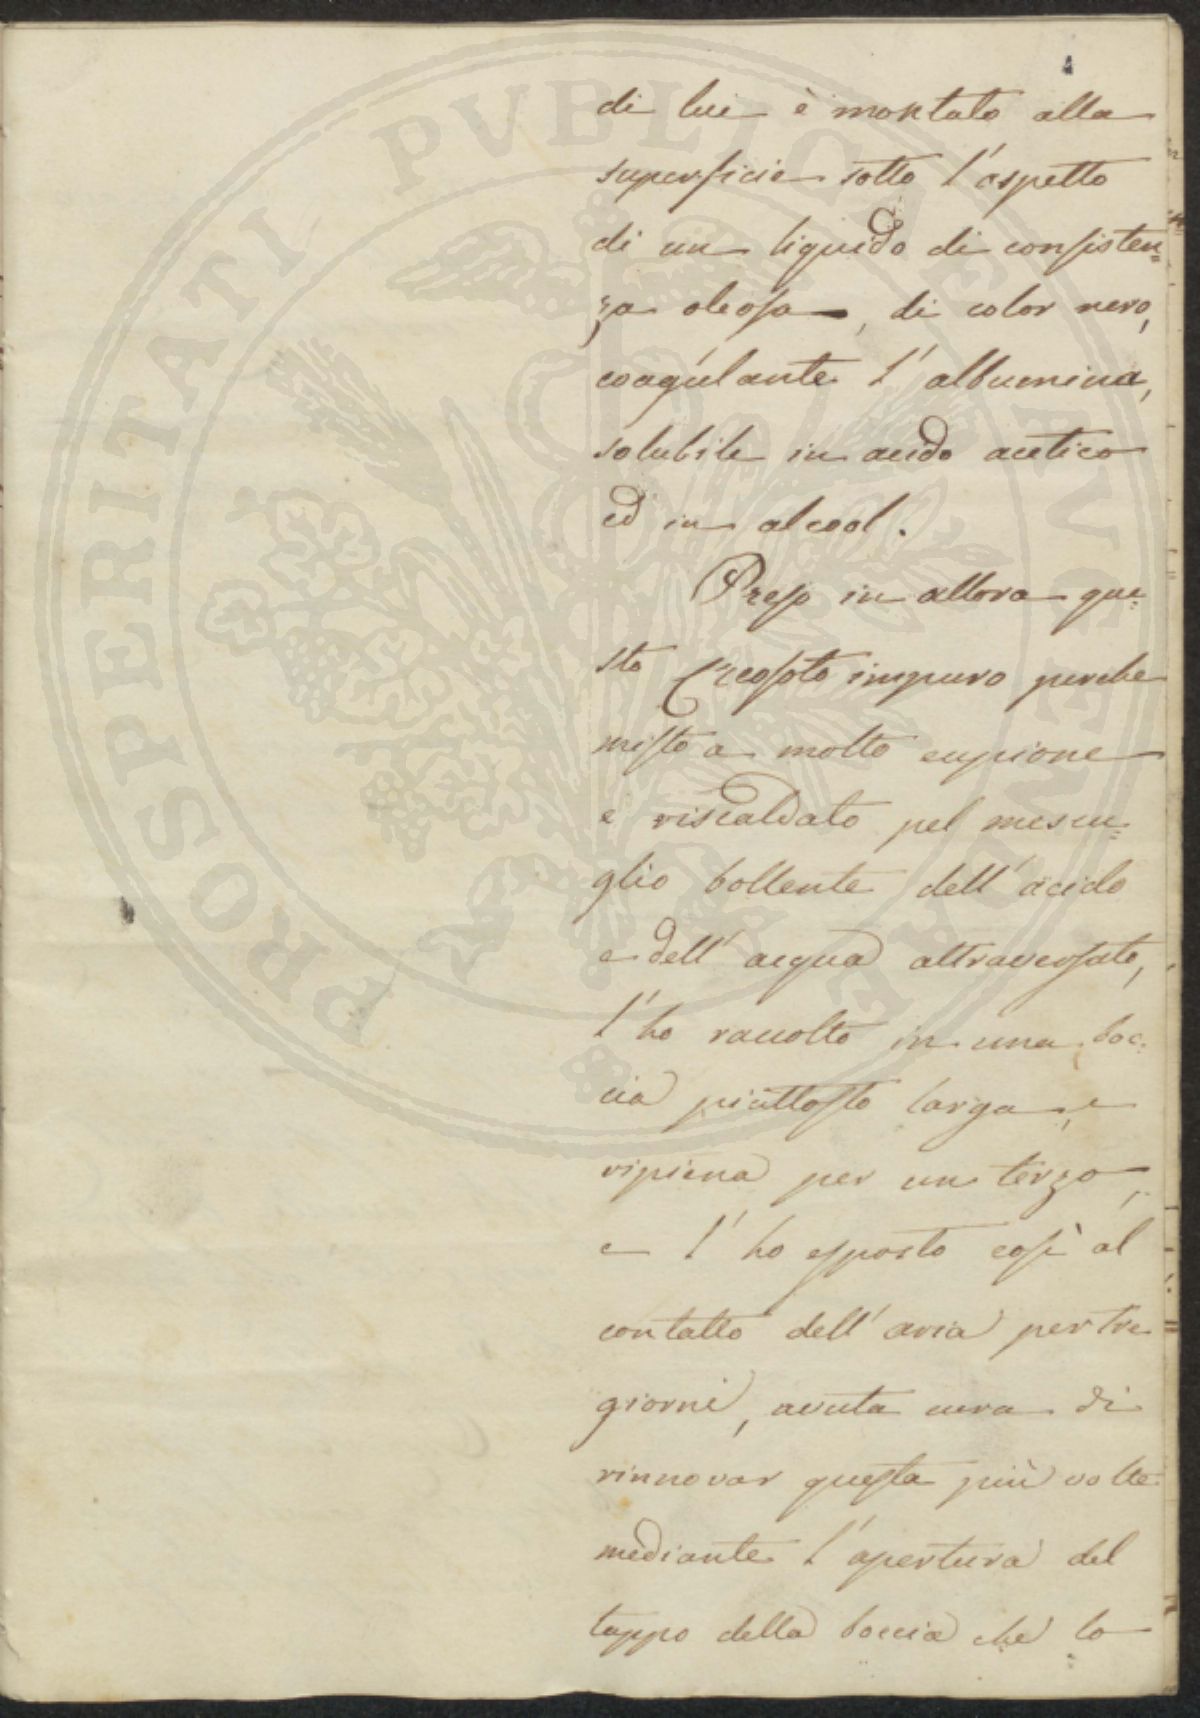 4
di lui è montato alla
superficie sotto l'aspetto
di un liquido di consisten=
za oleosa, di color nero,
coagulante l'albumina,
solubile in acido acetico
ed in alcool.
Preso in allora que=
sto Creosoto impuro perche
misto a molto eupione
e riscaldato pel mescu=
glio bollente dell'acido
e dell'acqua attraversato,
l'ho raccolto in una boc=
cia piuttosto larga, e
ripiena per un terzo,
e l'ho esposto così al
contatto dell'aria per tre
giorni, avuta cura di
rinnovar questa più volte
mediante l'apertura del
tappo della boccia che lo
PROSPERITATI PVBLICAE AVGENDAE